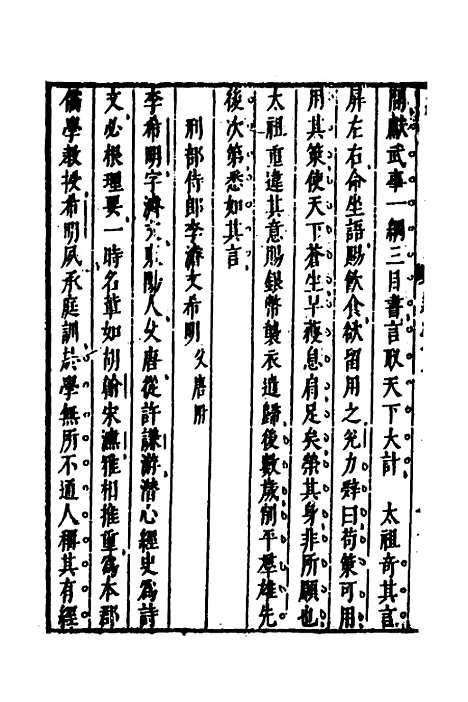 關獻武事一綱三目書言取天下大計　太祖奇其言
屏左右命坐語賜飲食欲留用之兌力辭曰苟策可用
用其策使天下蒼生早獲息肩足矣榮其身非所願也
太祖重違其意賜銀幣襲衣遣歸後數歲削平羣雄先
後次第悉如其言
刑部侍郎李濟文希明父唐附
李希明字濟文東陽人父唐從許謙游潛心經史爲詩
文必根理要一時名輩如胡翰宋濂雅相推重爲本郡
儒學教授希明夙承庭訓誌學無所不通人稱其有經